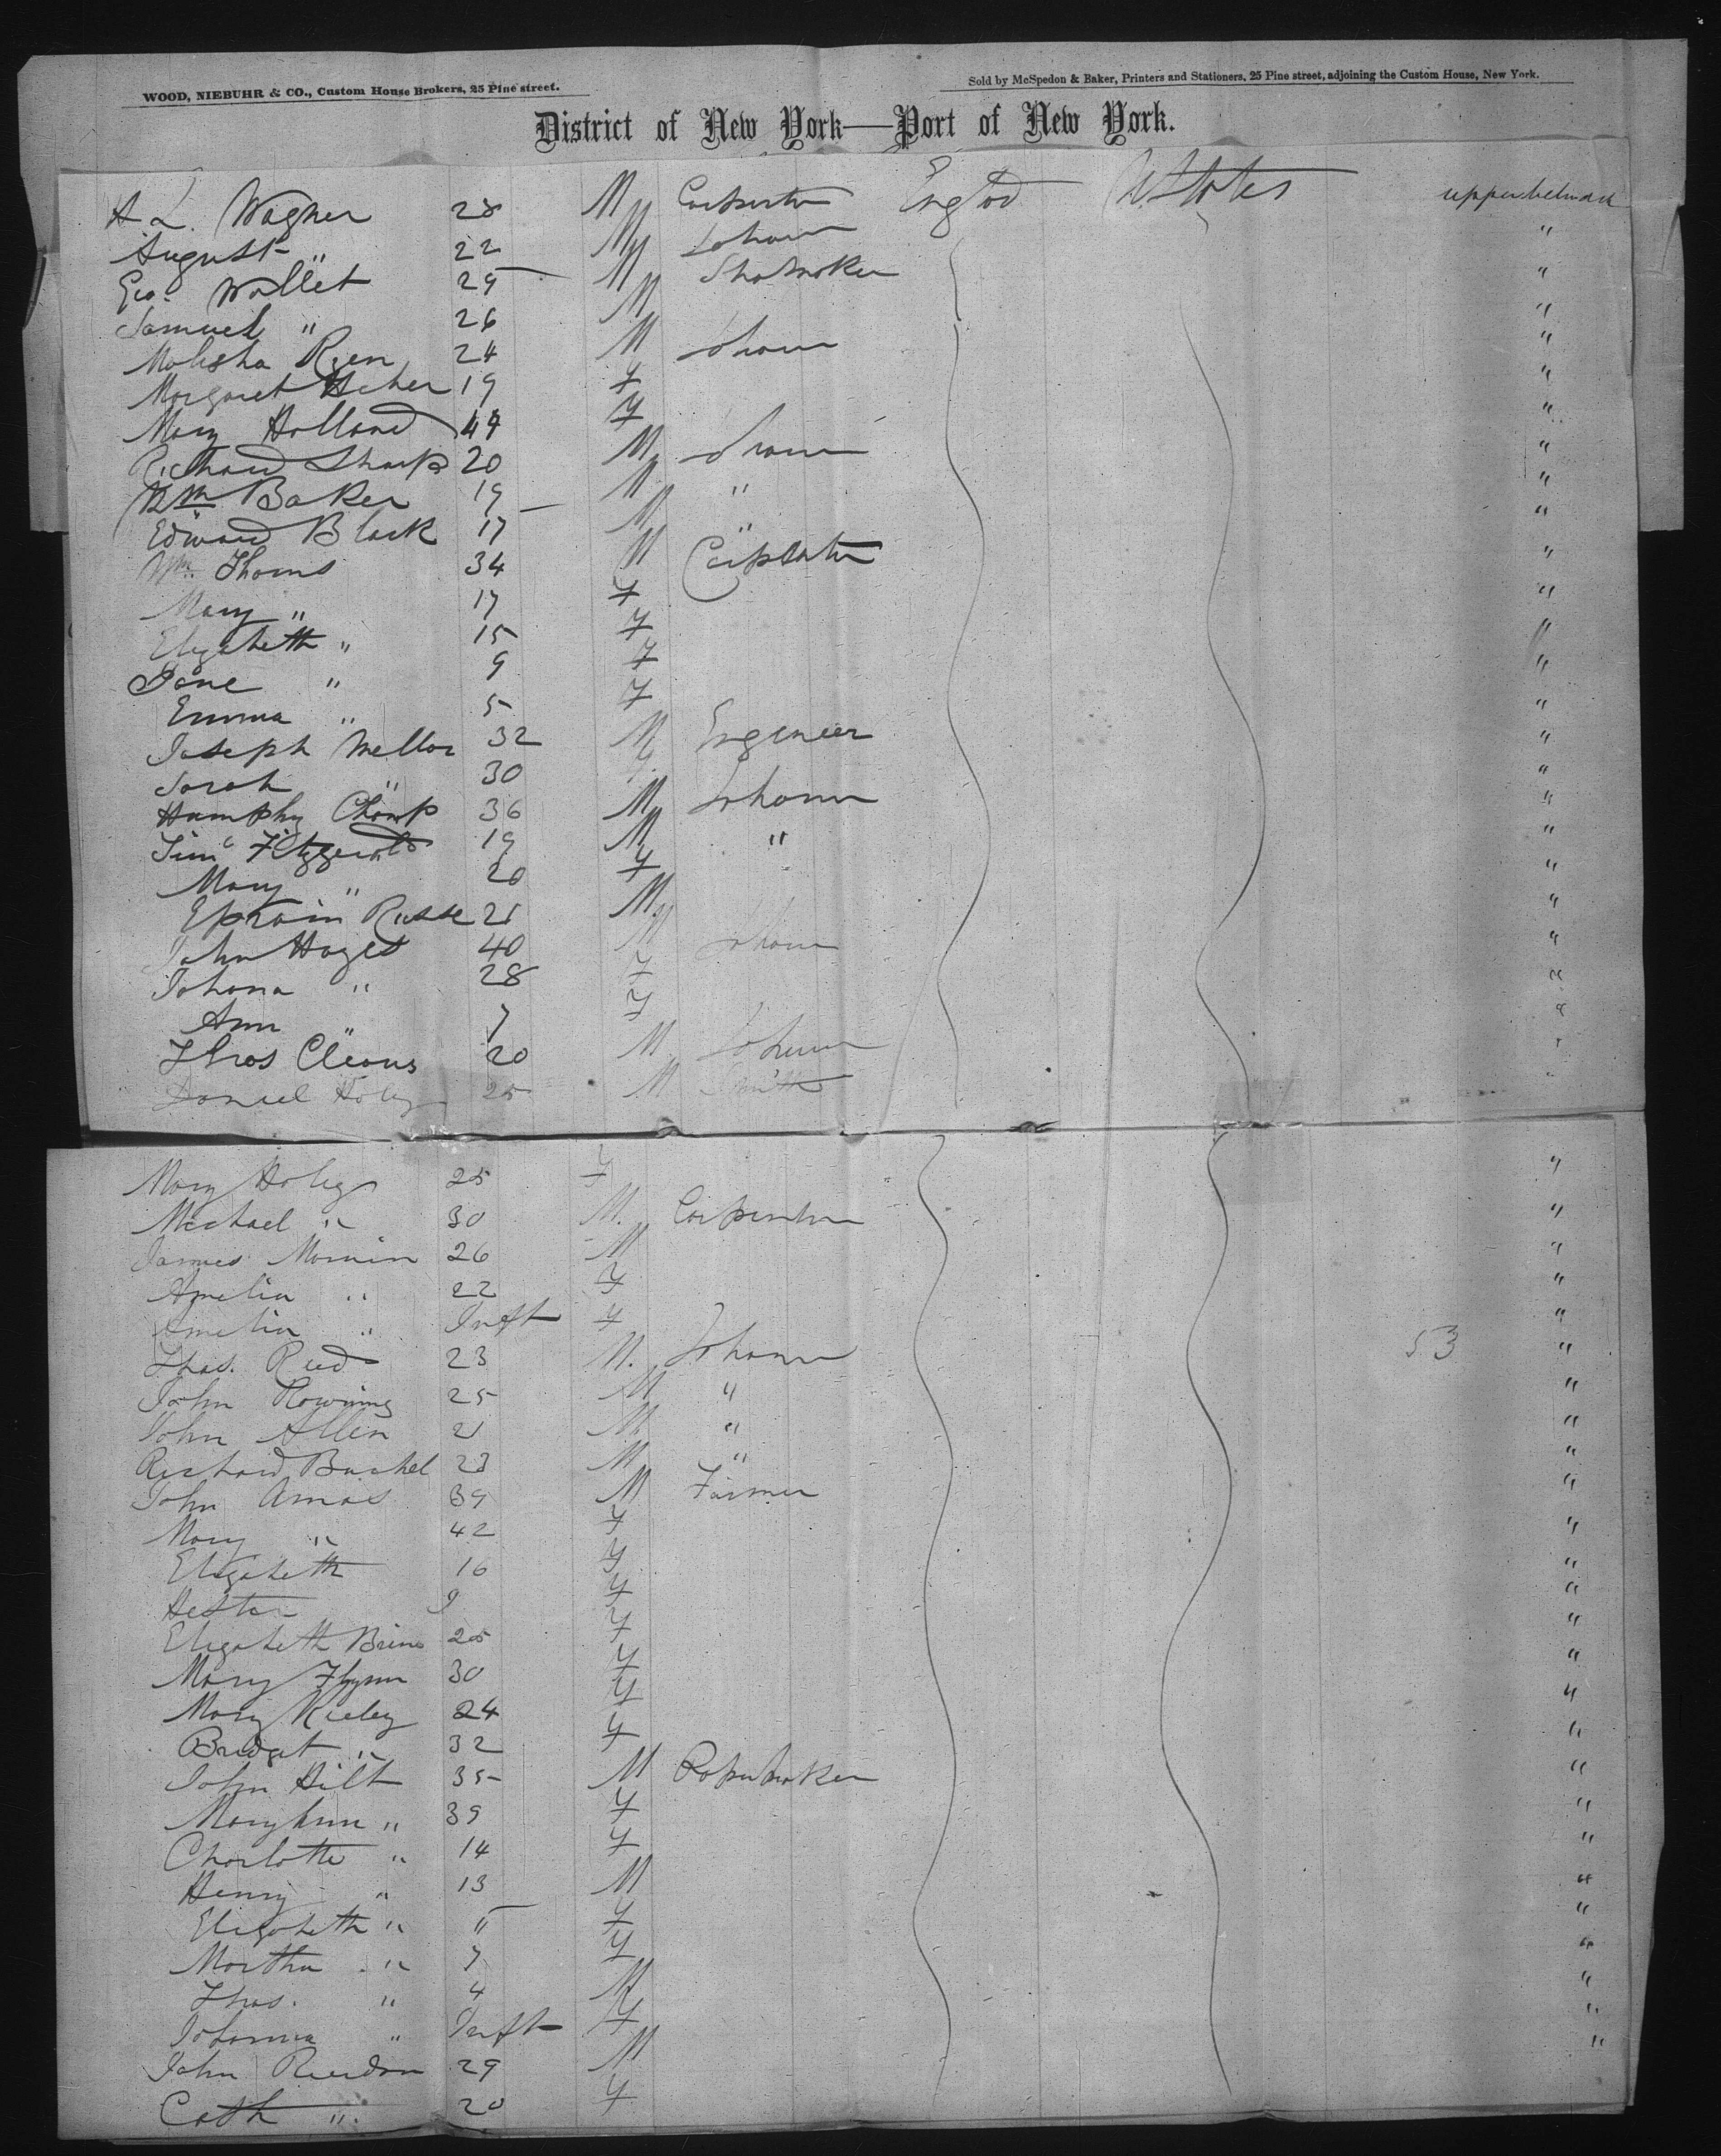 WOOD, NIEBUHR & CO., Custom House Brokers, 25 Pine street.
Sold by McSpedon & Baker, Printers and Stationers, 25 Pine street, adjoining the Custom House, New York.
District of New York—Port of New York.
A L. Wagner 28 M Carpenter England U States upper between
August " 22 M Laborer "
Geo. Wallet 29 M Shoemaker "
Samuel " 26 M "
24 M Laborer "
Margaret 19 F "
Mary Holland 44 F "
Richard Sharp 20 M Laborer "
Wm Baker 19 M " "
Edward Black 17 M " "
Wm. Thoms 34 M Carpenter "
Mary " 17 F "
Elizabeth " 15 F "
Jane " 9 F "
Emma " 5 F "
Joseph Mellor 32 M Engineer "
Sarah " 30 F "
Humphy Champ 36 M Laborer "
Jim Fitzgerald 19 M " "
Mary " 20 F "
Ephraim 21 M "
John Hayes 40 M Laborer "
Johana " 28 F "
Ann " 7 F "
Thos 20 M Laborer
Daniel 25 M Smith "
Mary 25 F "
Michael " 30 M. Carpenter "
James 26 M "
Amelia " 22 F "
Amelia " Inft F "
Thos. Reed 23 M. Laborer 53 "
John 25 M " "
John Allen 21 M " "
Richard Bushel 23 M " "
John Amos 39 M Farmer "
Mary " 42 F "
Elizabeth 16 F "
Hester 9 F "
Elizabeth 25 F "
Mary Flynn 30 F "
Mary Kieley 24 F "
Bridget " 32 F "
John Hilt 35 M Ropemaker "
Mary Ann " 39 F "
Charlotte " 14 F "
Henry " 13 M "
Elizabeth " 11 F "
Martha " 7 F "
Thos. " 4 M "
Johanna " Inft F "
John Reardon 29 M "
Cath " 20 F